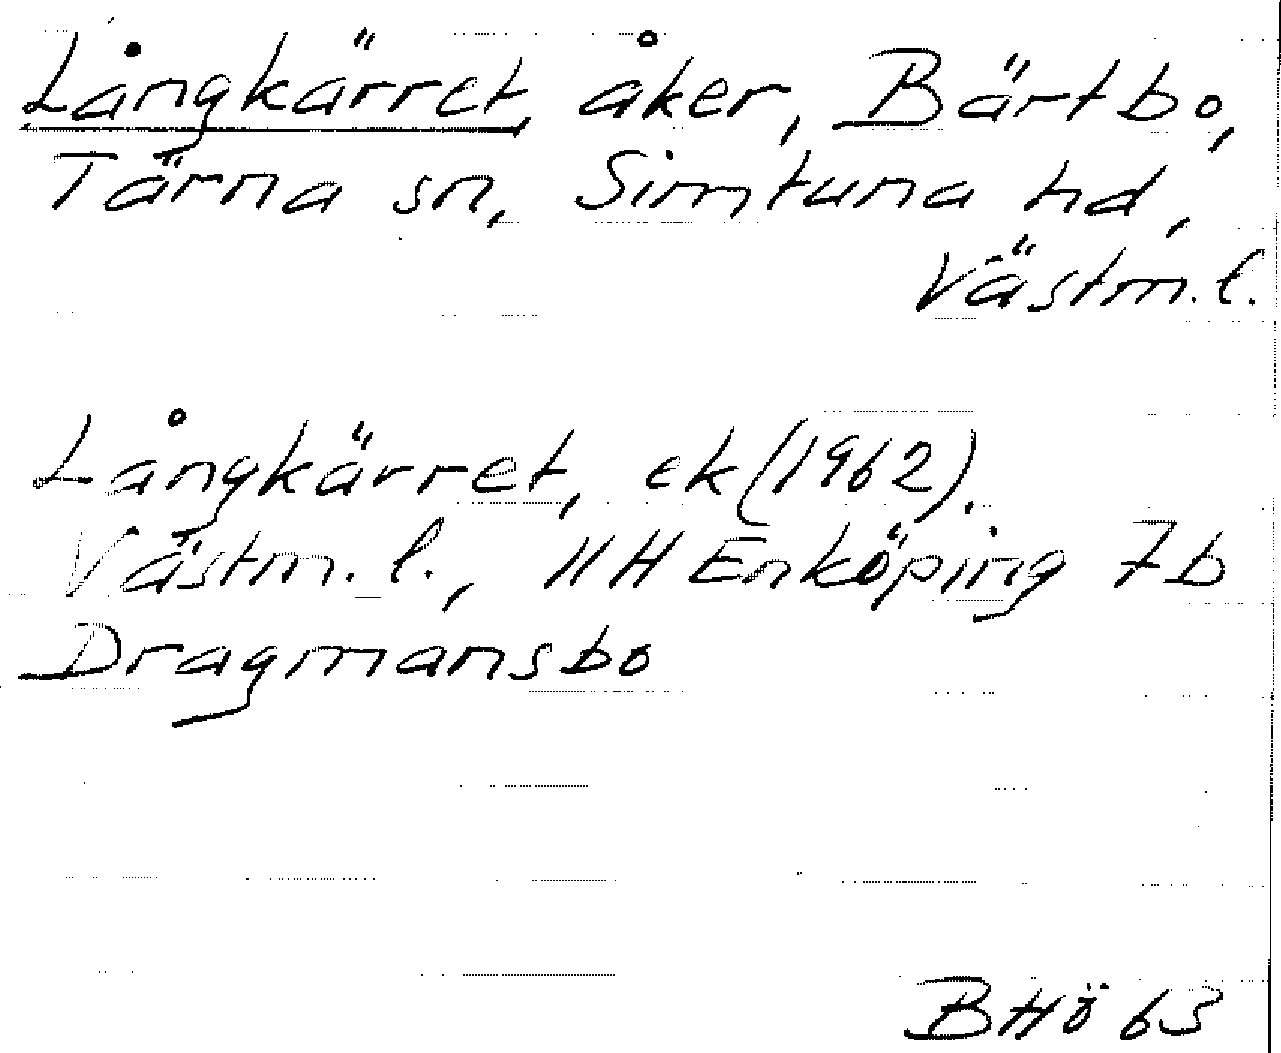 Långkärret, åker, Bärtbo,
Tärna sn, Simtuna hd,
Västm. l.
Långkärret, ek (1962).
Västm. l., 11H Enköping 7b
Dragmansbo
BHö 63